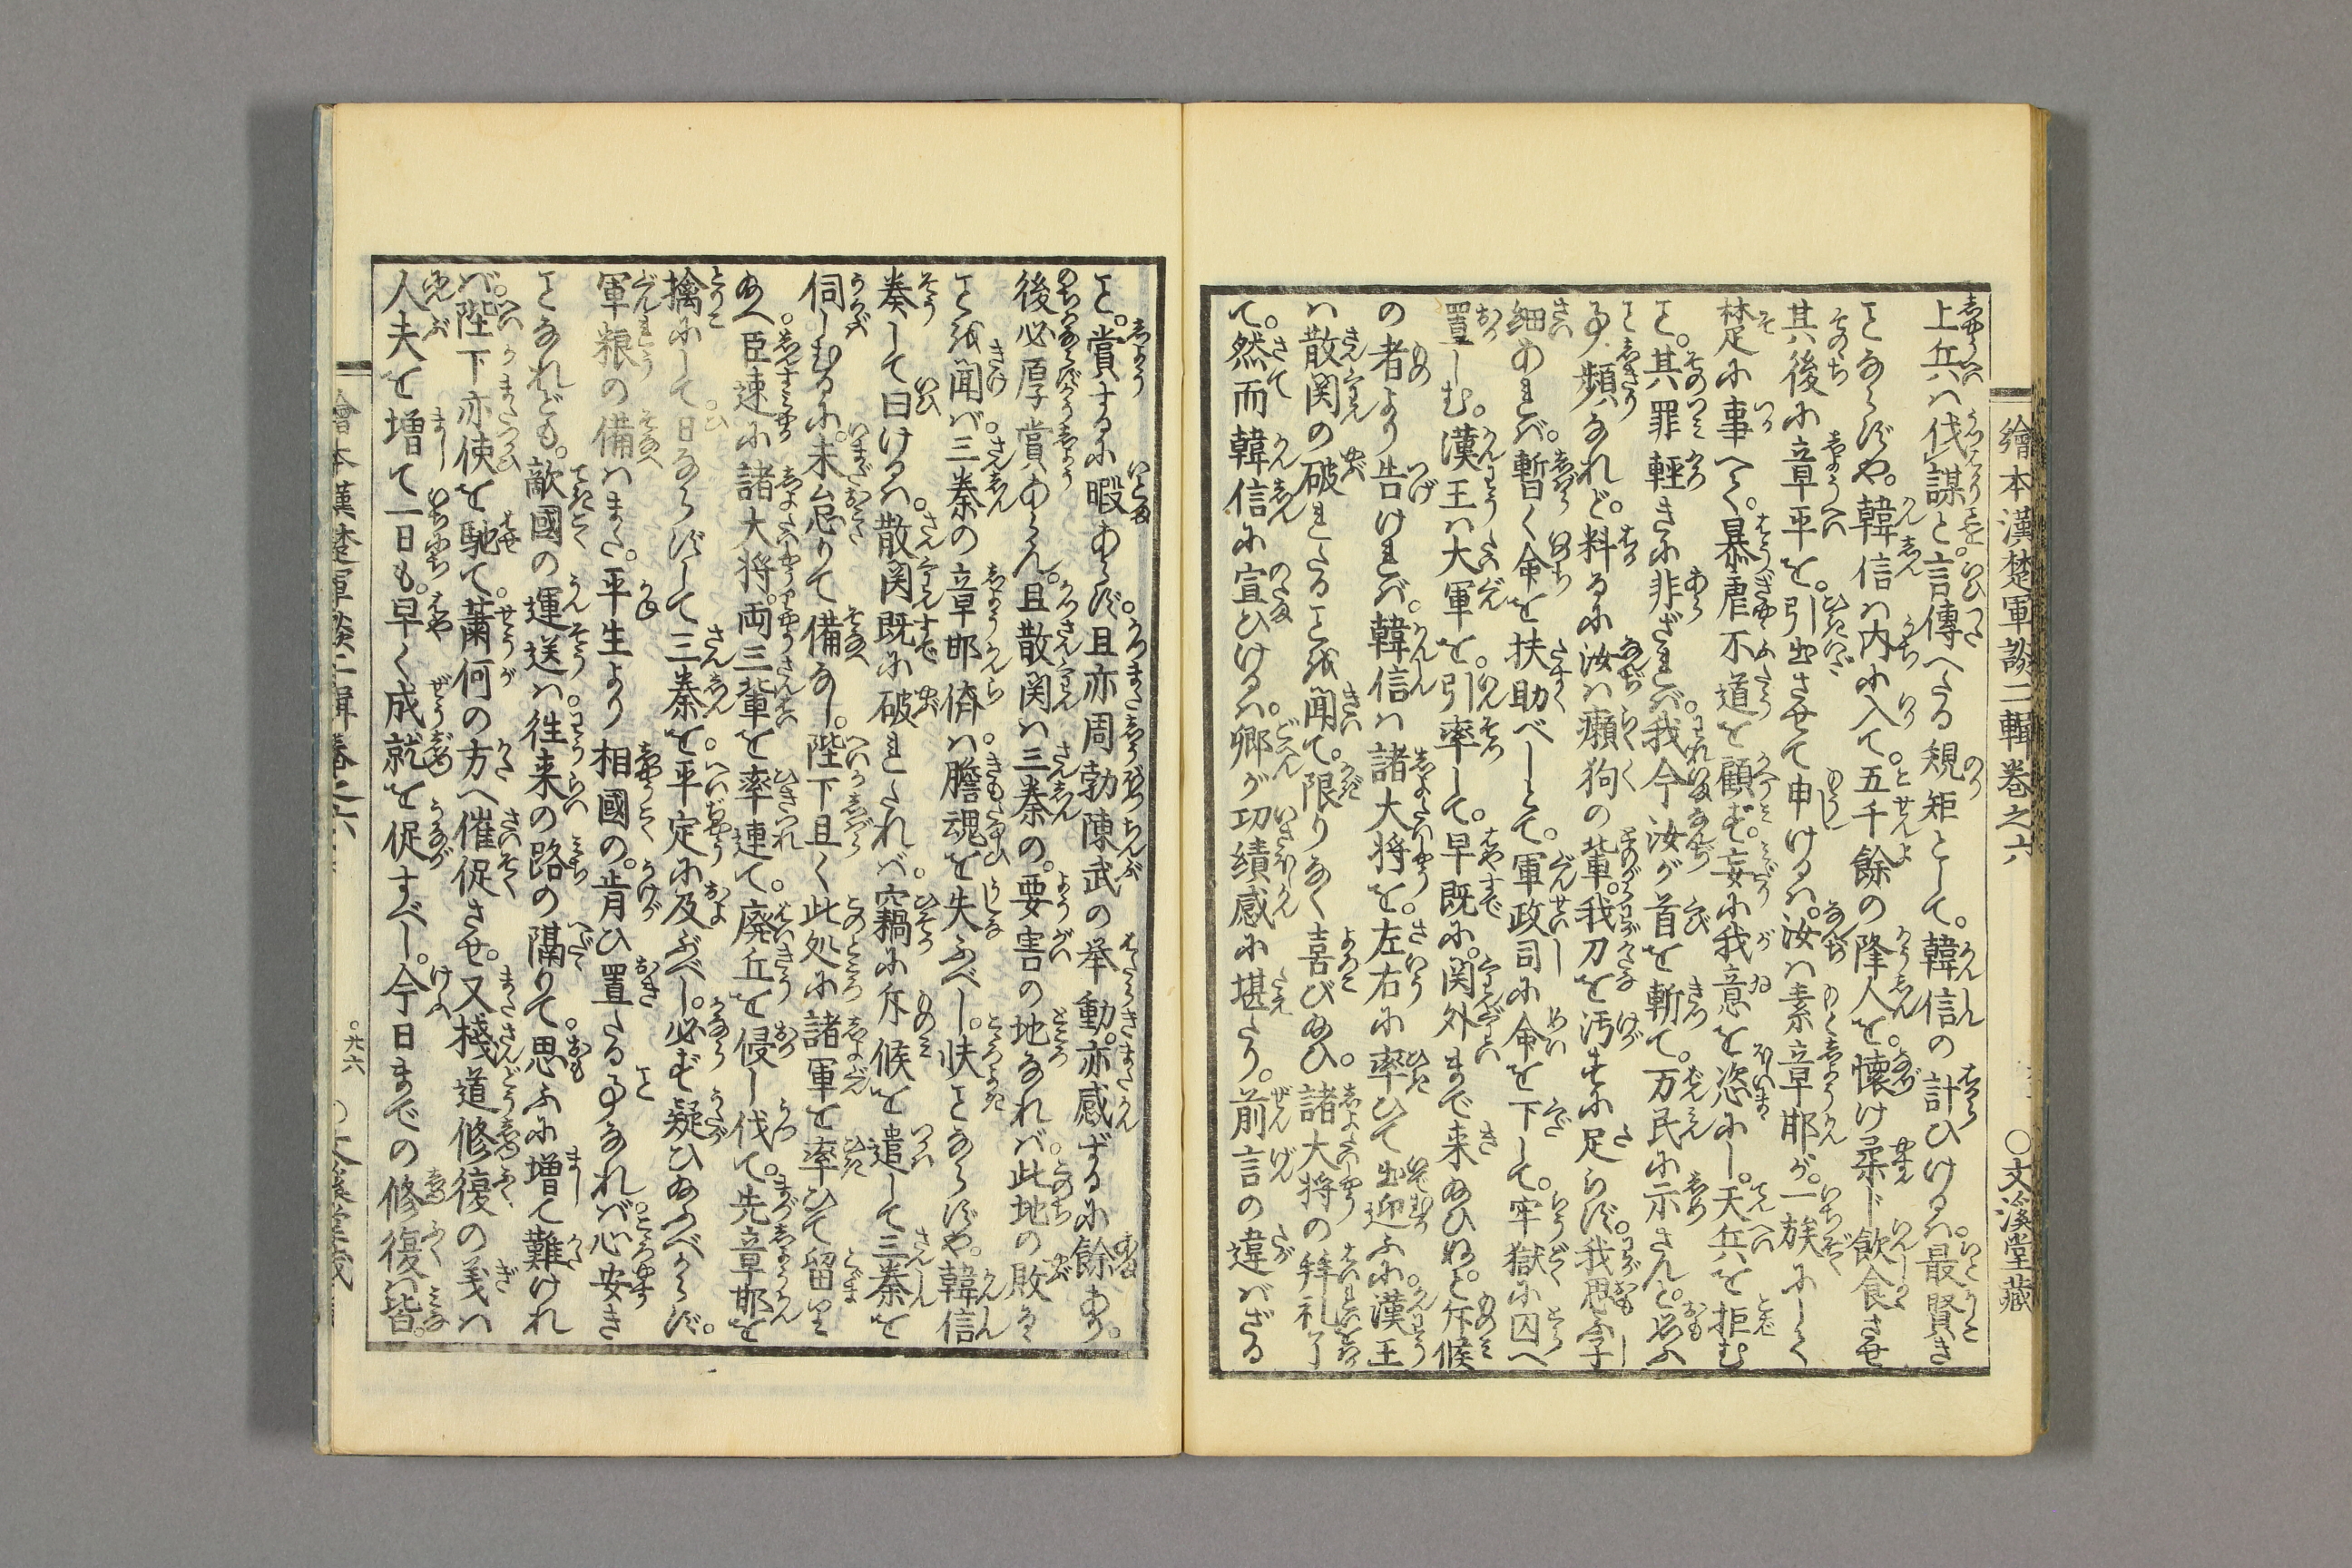 繪本漢楚軍談二輯巻之六
○文溪堂藏
上兵ハ伐謀と言傳へたる規矩として。韓信の計ひけるハ。最賢き
ことならずや。韓信ハ内に入て。五千餘の降人を。懐け柔ド飲食させ
其後に章平を。引出させて申けるハ。汝ハ素章邯が。一族にして
楚に事へて。暴虐不道を顧ず。妄に我意を恣にし。天兵を拒む
こと。其罪輕きに非ざれバ。我今汝が首を斬て。万民に示さんと思ふ
こと頻なれど。料るに汝ハ癩狗の輩。我刀を汚すに足らず。我思ふ子
細あれバ。暫く命を扶助べしとて。軍政司に命を下して。牢獄に囚へ
置しむ。漢王ハ大軍を。引率して。早既に。関外まで来給ひぬと。斥候
の者より告けれバ。韓信ハ諸大将を。左右に率ひて出迎ふに。漢王
ハ散関の破れたるこ​とを聞て。限りなく喜び給ひ。諸大将の拝礼了
て。然而韓信に宣ひけるハ。卿が功績感に堪たり。前言の違ハざる
こと。賞するに暇あらず。且亦周勃陳武の挙動。亦感ずるに餘あり。
後必厚賞あらん。且散関ハ三秦の。要害の地なれバ。此地の敗るゝ
ことを聞バ。三秦の章邯儕ハ。膽魂を失ふべし。快ことならずや。韓信
奏して曰けるハ。散関既に破れたれバ。竊に斥候を遣して三秦を
伺しむるに。未怠りて備なし。陛下且く此処に諸軍を率ひて留り
給へ。臣速に諸大将。両三輩を率連て。廃丘を侵し伐て。先章邯を
擒にして。日ならずして三秦を。平定に及ぶべし。必ず疑ひ給ふべからず。
軍粮の備ハまた。平生より相國の。肯ひ置たる事なれバ。心安き
ことなれども。敵國の運送ハ。徃来の路の隔りて。思ふに増て難けれ
バ。陛下亦使を馳て。蕭何の方へ催促させ。又棧道修復の義ハ
人夫を増て一日も。早く成就を促すべし。今日までの修復ハ皆。
繪本漢楚軍談二輯巻之六